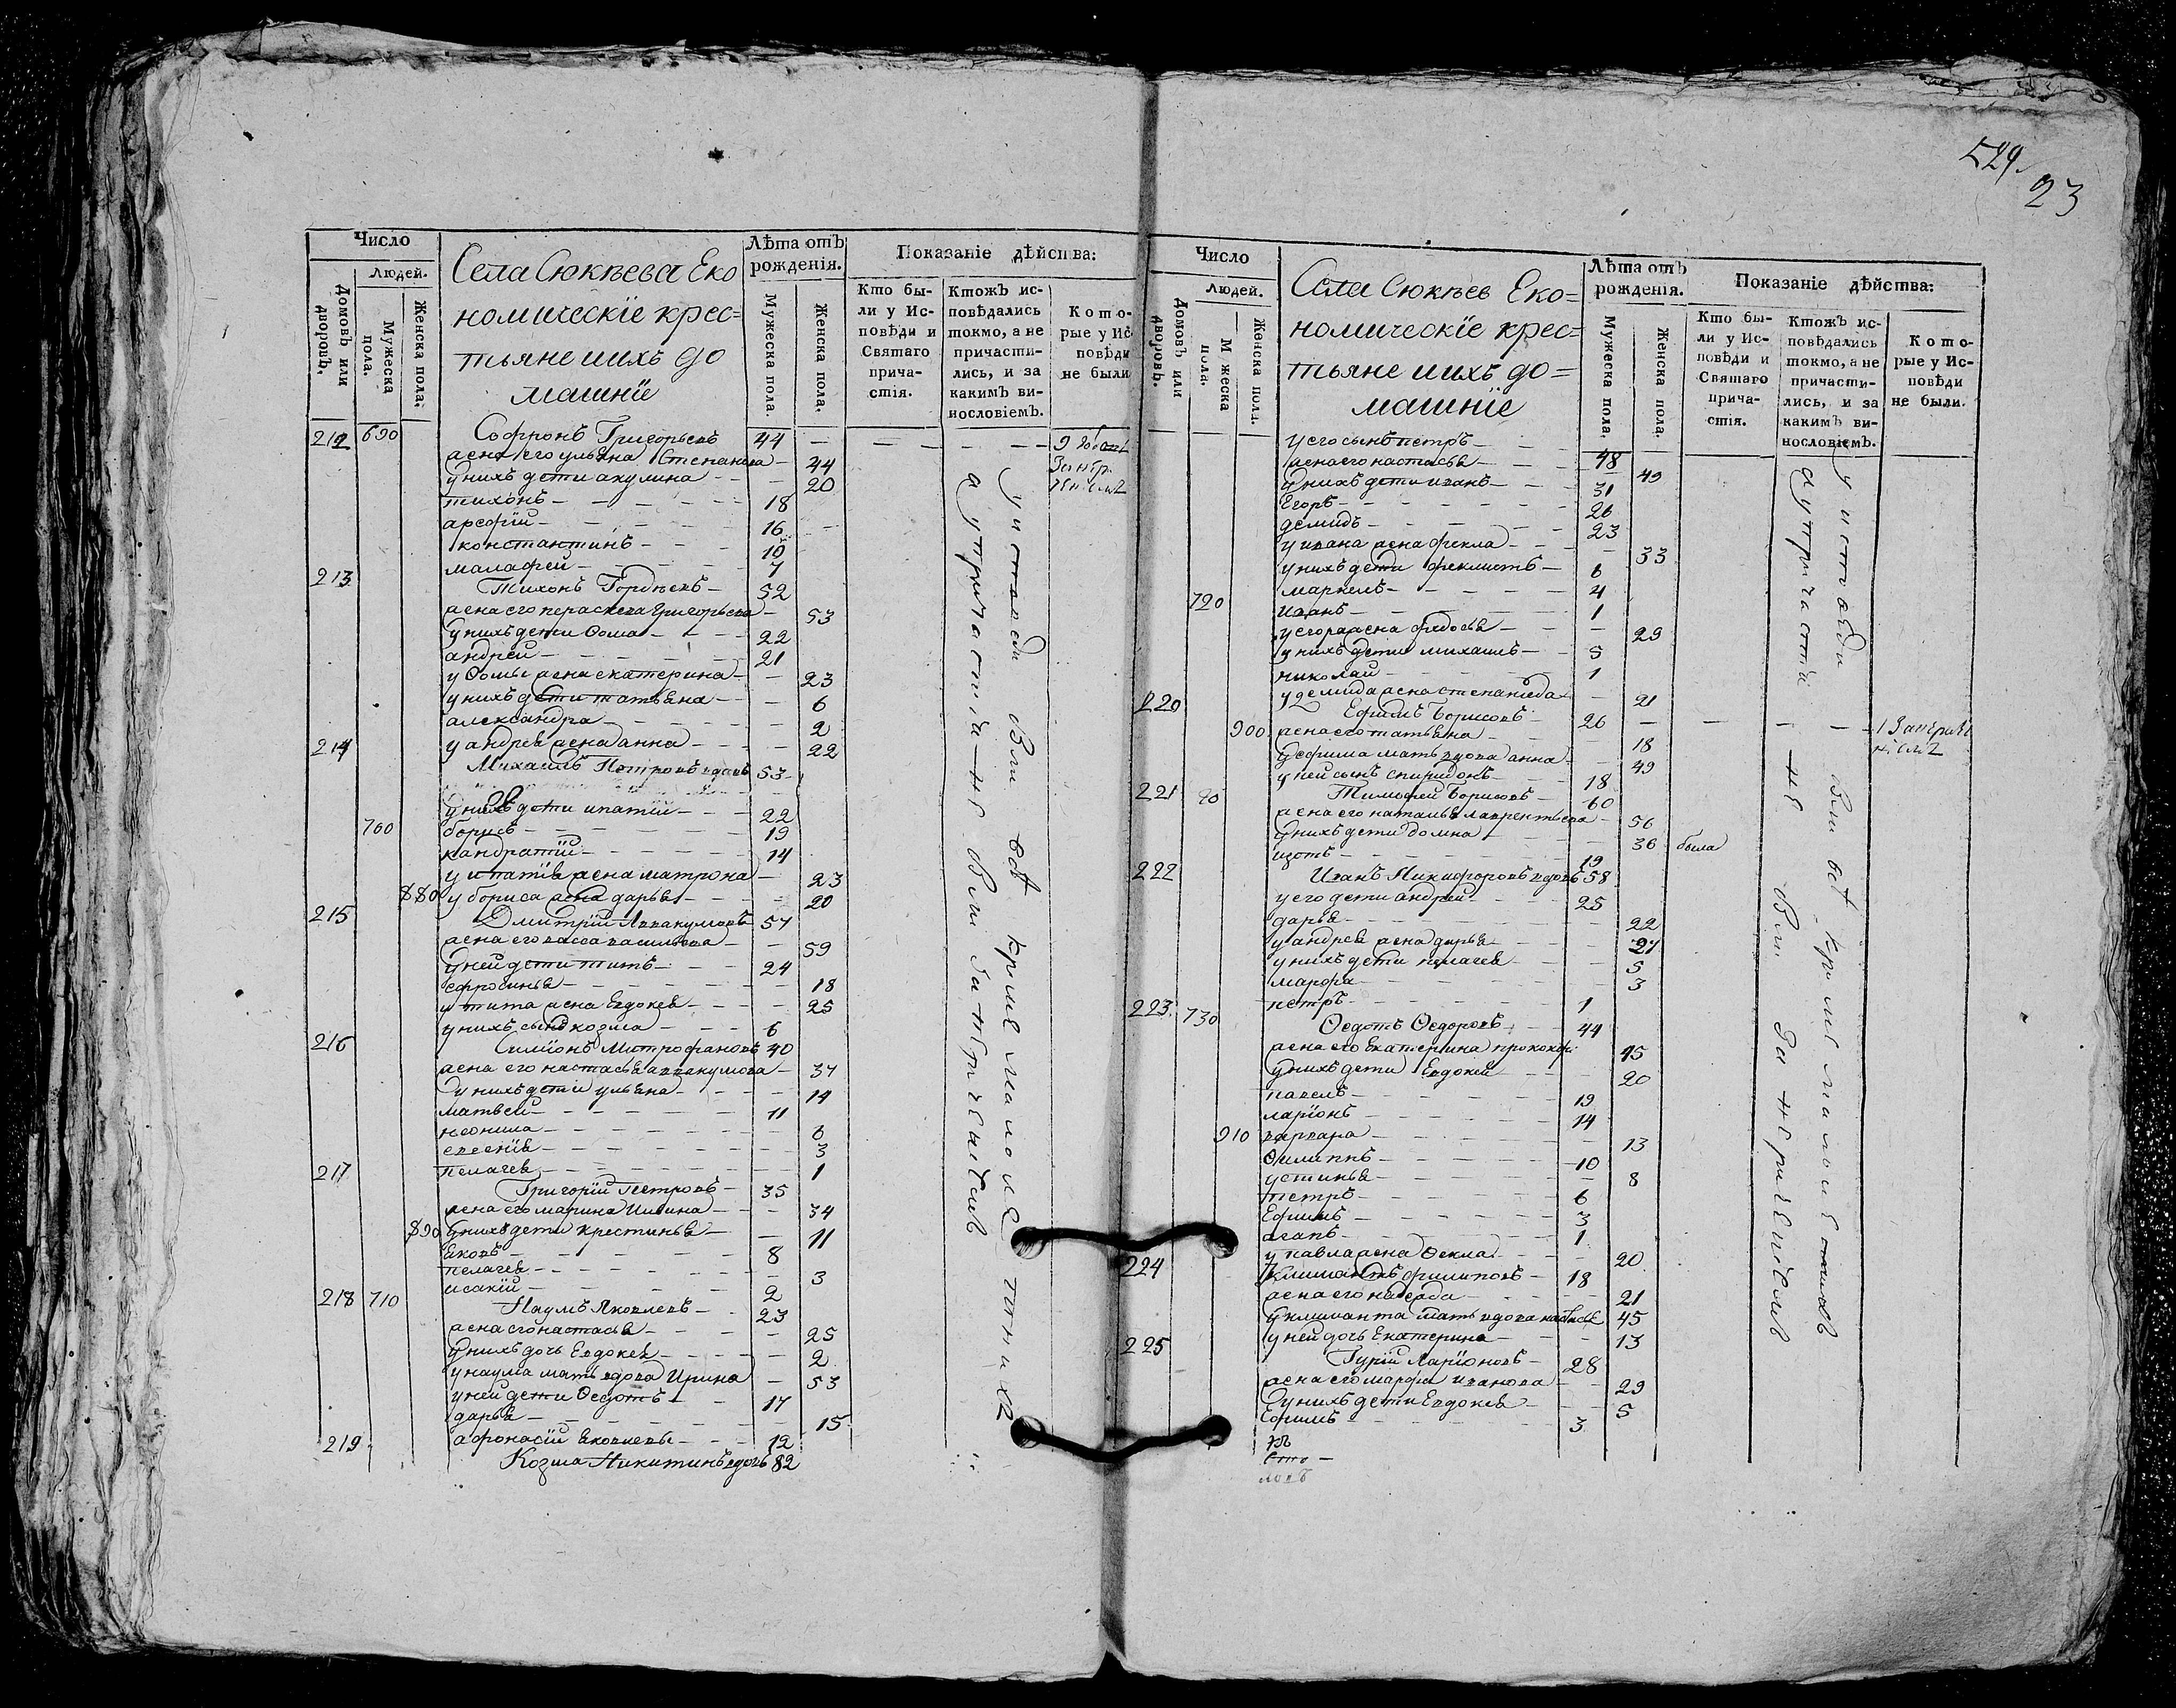 529
23
Число
Людей.
Домовъ или дворовъ.
Мужеска пола.
Женска пола.
Села Сюкѣева Еко
номическїе крес=
тьяне иихъ до
машнїе
Лѣта отъ рожденїя.
Мужеска пола.
Женска пола.
Показанїе дѣйства:
Кто были у Исповѣди и Святаго причастїя.
Ктожъ исповѣдались токмо, а не причастились, и за какимъ винословїемъ.
Которые у Исповѣди не были
212 690 Софронъ Григорьевъ 44 — — — —
жена его ульяна Степанова — 44
унихъ дети акулина — — 20
тихонъ — — — — 18
арефїй — — — — 16
константинъ — — — 10
малафей — — — 7
213 Тихонъ Гордѣевъ — 52
жена его пераскева Григорьева — 53
унихъ дети Ѳома — — — 22
андрей — — — — 21
уѲомы жена екатерина — — 23
унихъ дети татьяна — — 6
александра — — — — 2
у андрея жена анна — — — 22
214 Михаилъ Петровъ вдовъ 53
унихъ дети ипатїй — — — 22
700 борисъ — — — — 19
кандратїй — — — — 14
у ипатїя жена матрона — 23
880 у бориса жена дарья — — — 20
215 Дмитрїй Аввакумовъ 57
жена его васса васильева — — 59
уней дети титъ — — — 24
ефросинья — — — — 18
у тита жена Евдокея — — — 25
унихъ сынъ козма — — — 6
216 Симїонъ Митрофановъ 40
жена его настасья аввакумова — 37
унихъ дети ульяна — — — 14
матвей — — — — 11
неонила — — — — 6
евгенїя — — — — 3
пелагея — — — — 1
217 Григорїй Петровъ — 35
жена его марина Ильина — — 34
890 унихъ дети крестинья — — 11
Яковъ — — — — 8
пелагея — — — — 3
исакїй — — — — 2
218 710 Наумъ Яковлевъ — — 23
жена его настасья — — — 25
унихъ дочь Евдокея — — — 2
у наума мать вдова Ирина — 53
уней дети Ѳедотъ — — 17
дарья — — — — 15
афонасїй Яковлевъ — — — 12
219 Козма Никитинъ вдовъ 82
у исповеди
а у причастїя не
Число
Людей.
Домовъ или дворовъ.
Мужеска пола.
Женска пола.
Села Сюкѣев Еко=
номическїе крес=
тьяне иихъ до=
машнїе
Лѣта отъ рожденїя.
Мужеска пола.
Женска пола.
Показанїе дѣйства:
Кто были у Исповѣди и Святаго причастїя.
Ктожъ исповѣдались токмо, а не причастились, и за какимъ винословїемъ.
Которые у Исповѣди не были.
уего сынъ петръ — — — 48
жена его настасья — — — 49
унихъ дети иванъ — — — 31
Егоръ — — — — 26
демидъ — — — — 23
у ивана жена фекла — — — 33
унихъ дети феклистъ — 6
маркелъ — — — — 4
720 иванъ — — — — 1
уегора жена федосья — — — 29
унихъ дети михаилъ — — 5
николай — — — — 1
у демида жена степанида — 21
220 Ефимъ Борисовъ — 26 — — — —
900 жена его татьяна — — — 18
уефима мать вдова анна — 49
уней сынъ спиридонъ — — 18
221 Тимофей Борисовъ — 60
жена его наталья лаврентьева — 56
унихъ дети домна — — — 36 была
изотъ — — — — 19
222 Иванъ Никифоровъ вдовъ 58
уего дети андрей — — — 25
дарья — — — — 22
у андрея жена дарья — — — 27
унихъ дети пелагея — — — 5
марфа — — — — 3
петръ — — — — 1
223 730 Ѳедотъ Ѳедоровъ — — 44
жена его Екатерина прококфї 45
унихъ дети Евдокея — — — 20
павелъ — — — — 19
ларїонъ — — — — 14
910 варвара — — — — 13
Ѳилиппъ — — — — 10
устинья — — — — 8
петръ — — — — 6
Ефимъ — — — — 3
агапъ — — — — 1
у павла жена Ѳекла — — — 20
224 Климантъ филиповъ — 18
жена его надежда — — — 21
у климанта мать вдова 45
уней дочь Екатерина — — — 13
225 Гурїй Ларїоновъ — 28
жена его марфа иванова — — 29
унихъ дети Евдокея — — — 5
Ефимъ — — — — 3
у исповеди
а у причастїя не